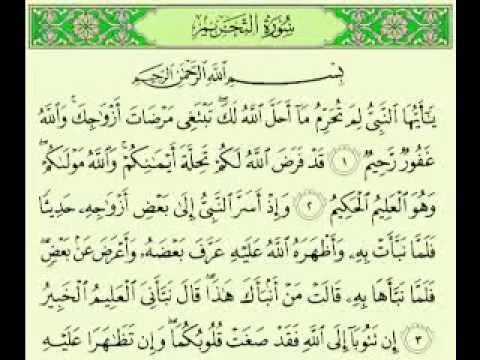 سُورَةُ التَّحْرِيمِ
بِسْمِ اللَّهِ الرَّحْمَٰنِ الرَّحِيمِ
يَٰٓأَيُّهَا ٱلنَّبِىُّ لِمَ تُحَرِّمُ مَآ أَحَلَّ ٱللَّهُ لَكَ ۖ تَبْتَغِى مَرْضَاتَ أَزْوَٰجِكَ ۚ وَٱللَّهُ
غَفُورٌ رَّحِيمٌ ١ قَدْ فَرَضَ ٱللَّهُ لَكُمْ تَحِلَّةَ أَيْمَٰنِكُمْ ۚ وَٱللَّهُ مَوْلَىٰكُمْ ۖ
وَهُوَ ٱلْعَلِيمُ ٱلْحَكِيمُ ٢ وَإِذْ أَسَرَّ ٱلنَّبِىُّ إِلَىٰ بَعْضِ أَزْوَٰجِهِۦ حَدِيثًا
فَلَمَّا نَبَّأَتْ بِهِۦ وَأَظْهَرَهُ ٱللَّهُ عَلَيْهِ عَرَّفَ بَعْضَهُۥ وَأَعْرَضَ عَنۢ بَعْضٍ ۖ
فَلَمَّا نَبَّأَهَا بِهِۦ قَالَتْ مَنْ أَنۢبَأَكَ هَٰذَا ۖ قَالَ نَبَّأَنِىَ ٱلْعَلِيمُ ٱلْخَبِيرُ
٣ إِن تَتُوبَآ إِلَى ٱللَّهِ فَقَدْ صَغَتْ قُلُوبُكُمَا ۖ وَإِن تَظَٰهَرَا عَلَيْهِ